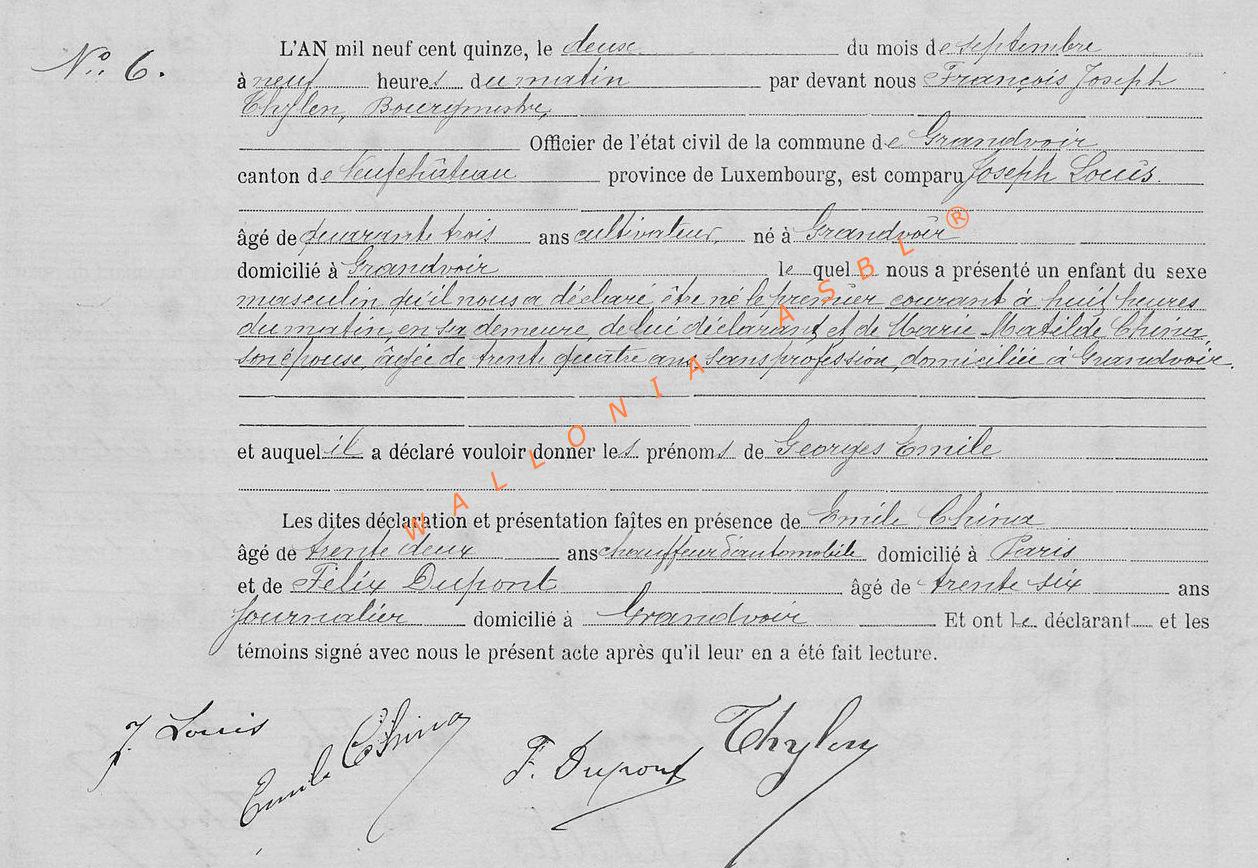 N.º 6.
L'AN mil neuf cent quinze, le deux du mois de septembre
à neuf heures du matin par devant nous François Joseph
Thylen, Bourgmestre,
Officier de l'état civil de la commune de Grandvoir
canton de Neufchâteau province de Luxembourg, est comparu Joseph Louis.
âgé de quarante trois ans cultivateur, né à Grandvoir
domicilié à Grandvoir le quel nous a présenté un enfant du sexe
masculin qu'il nous a déclaré être né le premier courant à huit heures
du matin, en sa demeure, de lui déclarant, et de Marie Matilde China
son épouse, âgée de trente quatre ans sans profession, domiciliée à Grandvoir.
et auquel il a déclaré vouloir donner les prénoms de Georges Emile
Les dites déclaration et présentation faîtes en présence de Emile China
âgé de trente deux ans chauffeur d'automobile domicilié à Paris
et de Félix Dupont âgé de trente six ans
journalier domicilié à Grandvoir Et ont le déclarant et les
témoins signé avec nous le présent acte après qu'il leur en a été fait lecture.
J. Louis
Emile China
F. Dupont
Thylen
WALLONIA ASBL ®